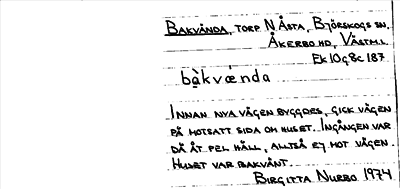 BAKVÄNDA, TORP N ÅSTA, BJÖRSKOGS SN,
ÅKERBO HD, VÄSTML.
Ek 10g8c 187
bàkvǽnda
INNAN NYA VÄGEN BYGGDES, GICK VÄGEN
PÅ MOTSATT SIDA OM HUSET. INGÅNGEN VAR
DÅ ÅT FEL HÅLL, ALLTSÅ EJ MOT VÄGEN.
HUSET VAR BAKVÄNT.
BIRGITTA NURBO 1974